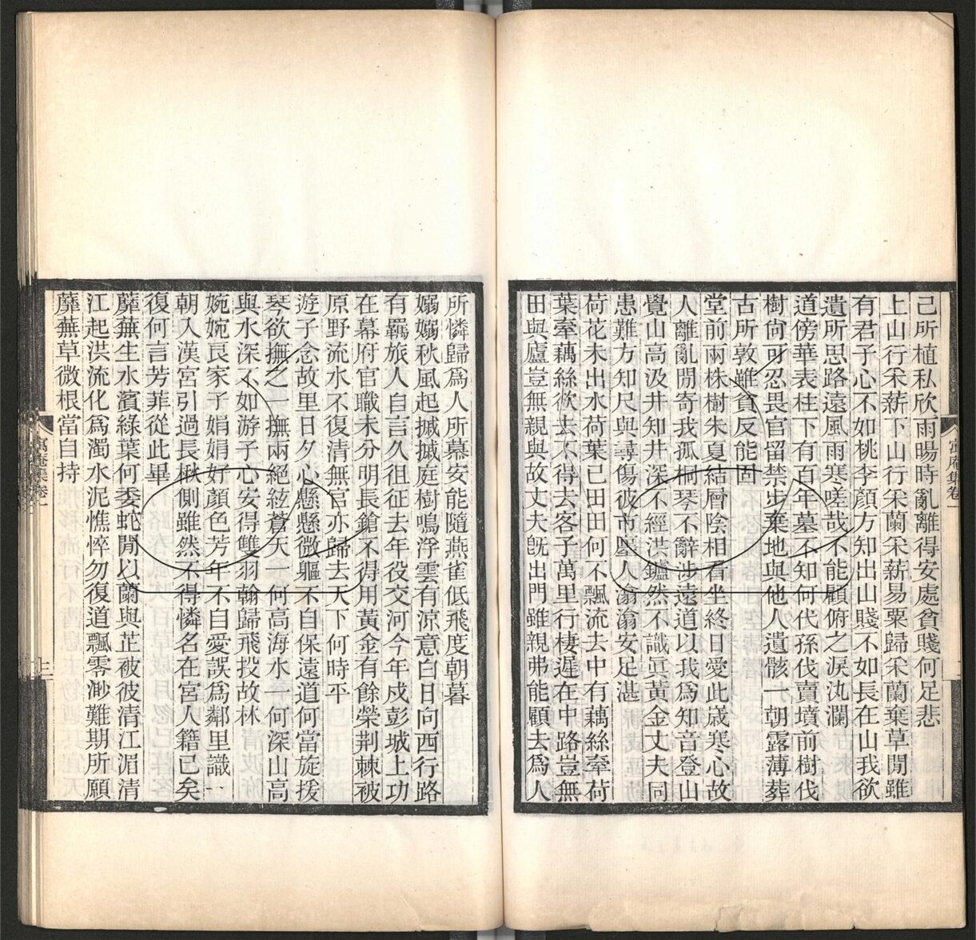 己所植私欣雨暘時亂離得安處貧賤何足悲
上山行采薪下山行采蘭采薪易粟歸采蘭棄草閒雖
有君子心不如桃李顏方知出山賤不如長在山我欲
遺所思路遠風雨寒嗟哉不能顧俯之淚汍瀾
道傍華表柱下有百年墓不知何代孫伐賣墳前樹伐
樹尙可忍畏官留禁步棄地與他人遺骸一朝露薄葬
古所敦雖貧反能固
堂前兩株樹朱夏結層陰相看坐終日愛此歲寒心故
人離亂閒寄我孤桐琴不辭涉遠道以我爲知音登山
覺山高汲井知井深不經洪鑪然不識眞黃金丈夫同
患難方知尺與尋傷彼市廛人滃滃安足湛
荷花未出水荷葉已田田何不飄流去中有藕絲牽荷
葉牽藕絲欲去不得去客子萬里行棲遲在中路豈無
田與廬豈無親與故丈夫旣出門雖親弗能顧去爲人
寓庵集卷一
所憐歸爲人所慕安能隨燕雀低飛度朝暮
嫋嫋秋風起摵摵庭樹鳴浮雲有涼意白日向西行路
有羈旅人自言久徂征去年役交河今年戍彭城上功
在幕府官職未分明長鎗不得用黃金有餘榮荆棘被
原野流水不復清無官亦歸去天下何時平
遊子念故里日夕心懸懸微軀不自保遠道何當旋援
琴欲撫之一撫兩絕絃蒼天一何高海水一何深山高
與水深不如游子心安得雙羽翰歸飛投故林
婉婉良家子娟娟好顏色芳年不自愛誤爲鄰里識一
朝入漢宮引過長楸側雖然不得憐名在宮人籍已矣
復何言芳菲從此畢
蘼蕪生水濱綠葉何委蛇閒以蘭與芷被彼清江湄清
江起洪流化爲濁水泥憔悴勿復道飄零渺難期所願
蘼蕪草微根當自持
寓庵集卷一